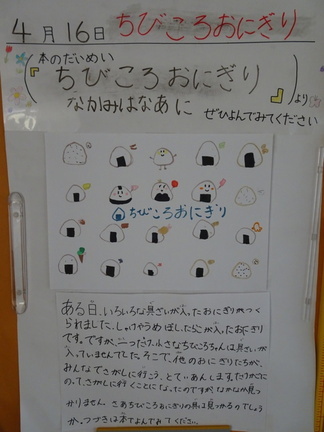 4月16日 ちびころおにぎり
(本のだいめい
『ちびころおにぎり
なかみはなあに』)より
ぜひよんでみてください
ちびころおにぎり
ある日、いろいろな具ざいが入ったおにぎりがつく
られました。しゃけやうめぼし、たらこが入ったおにぎり
です。ですが、一つだけ、小さなちびころちゃんは具ざいが
入っていませんでした。そこで、他のおにぎりたちが、
みんなでさがしに行こう、とていあんします。
のでさがしに行くことになったのですが、なかなか見つ
かりません。さあちびころおにぎりの具は見つかるのでしょう
か。つづきは本でよんでみてください。